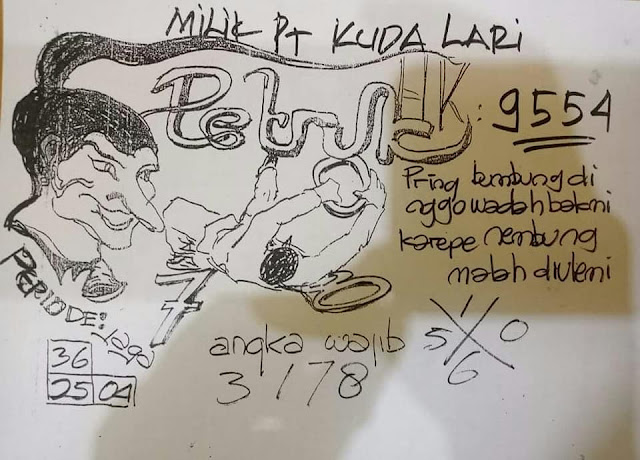 MILIK PT KUDA LARI
Petruk
HK : 9554
Pring
di
nggo wadah
karepe rembung
malah diuleni
PERIODE:
7
0
36
25 04
angka wajib
3 / 78
1
5 X 0
6